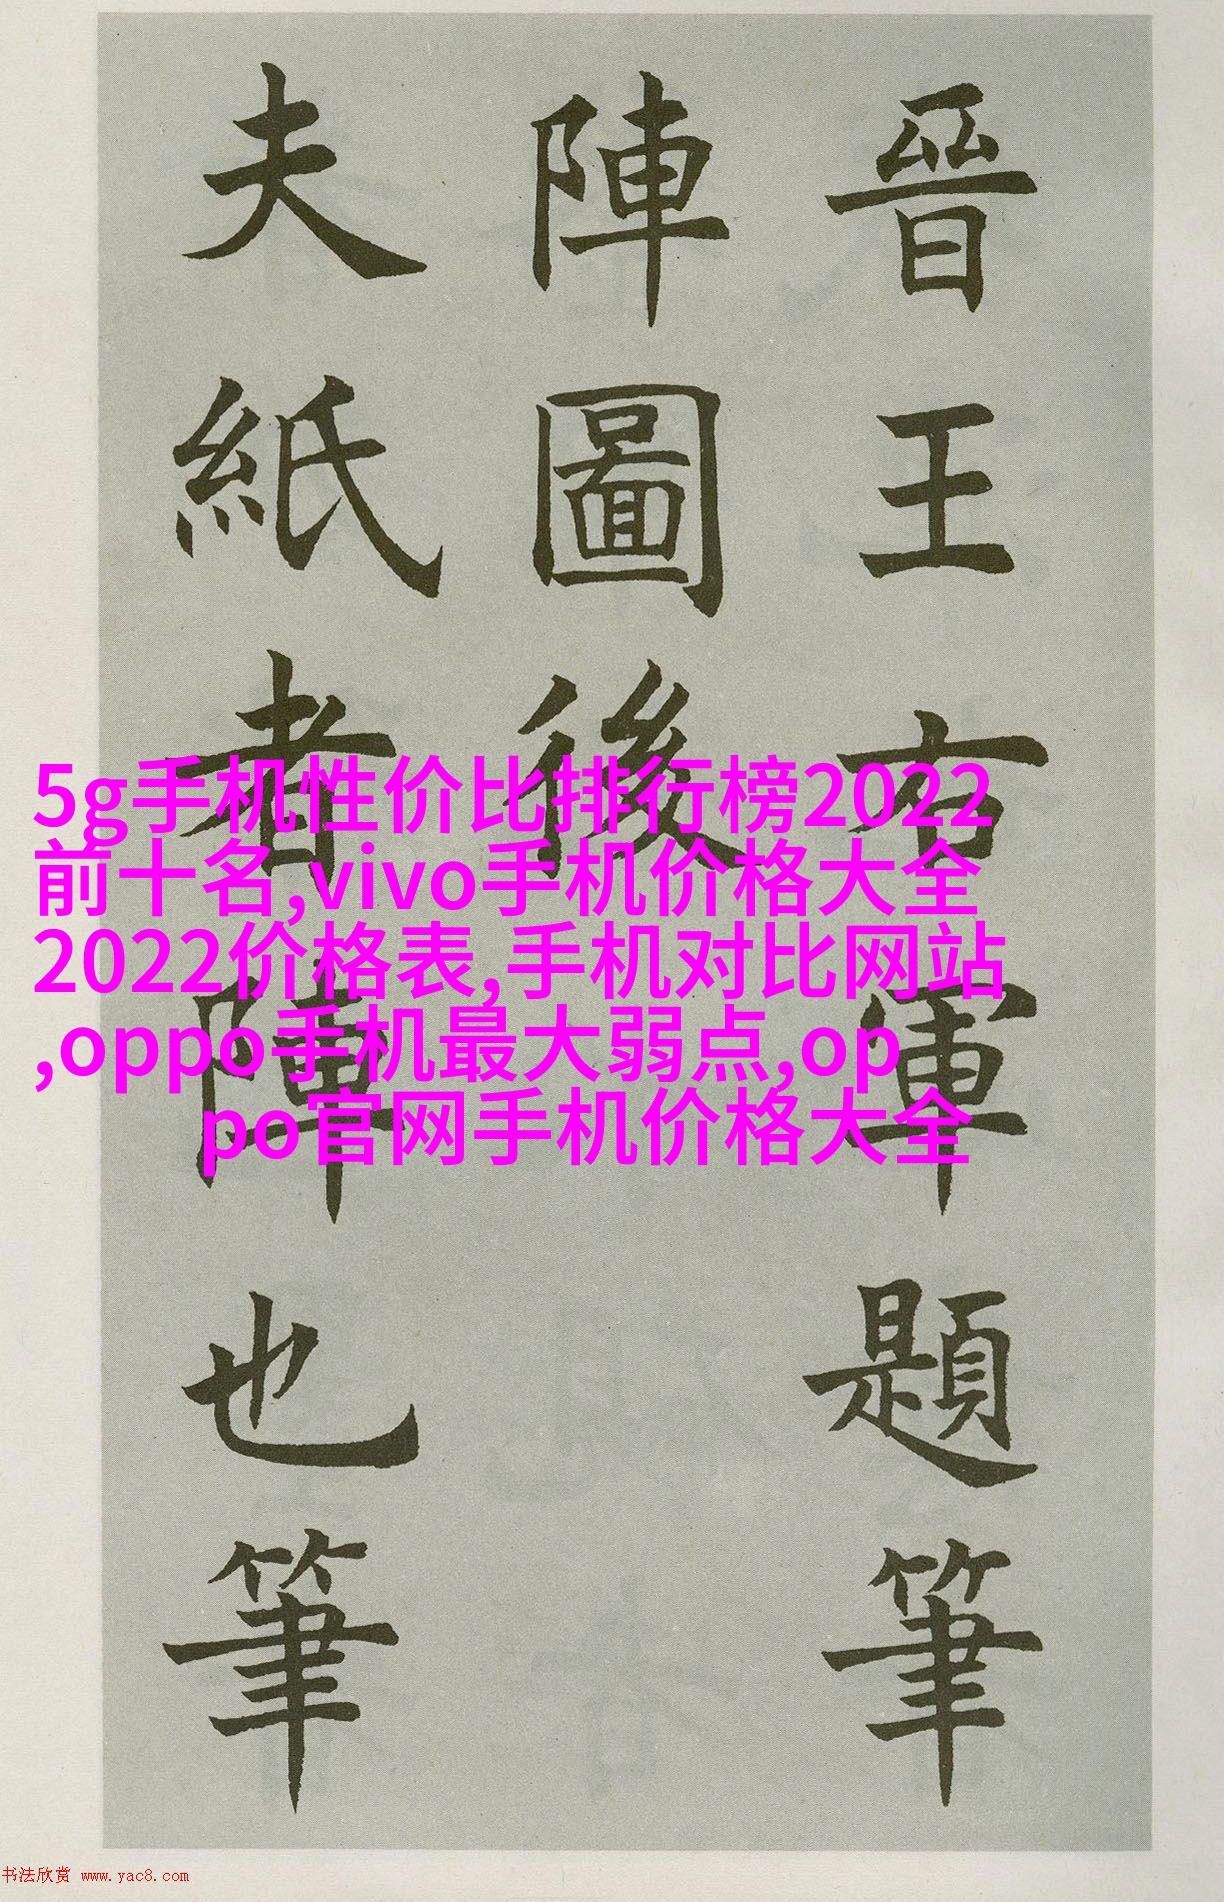 晉王右軍題筆
陣圖後
夫紙者陣也筆
5g手机性价比排行榜2022
前十名,vivo手机价格大全
2022价格表,手机对比网站
,oppo手机最大弱点,op
po官网手机价格大全
书法欣赏 www.yac8.com